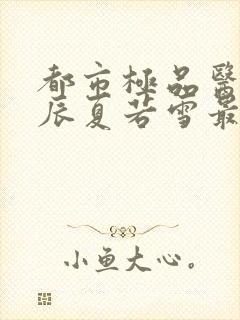 都市極品醫
辰夏若雪最
小鱼大心。